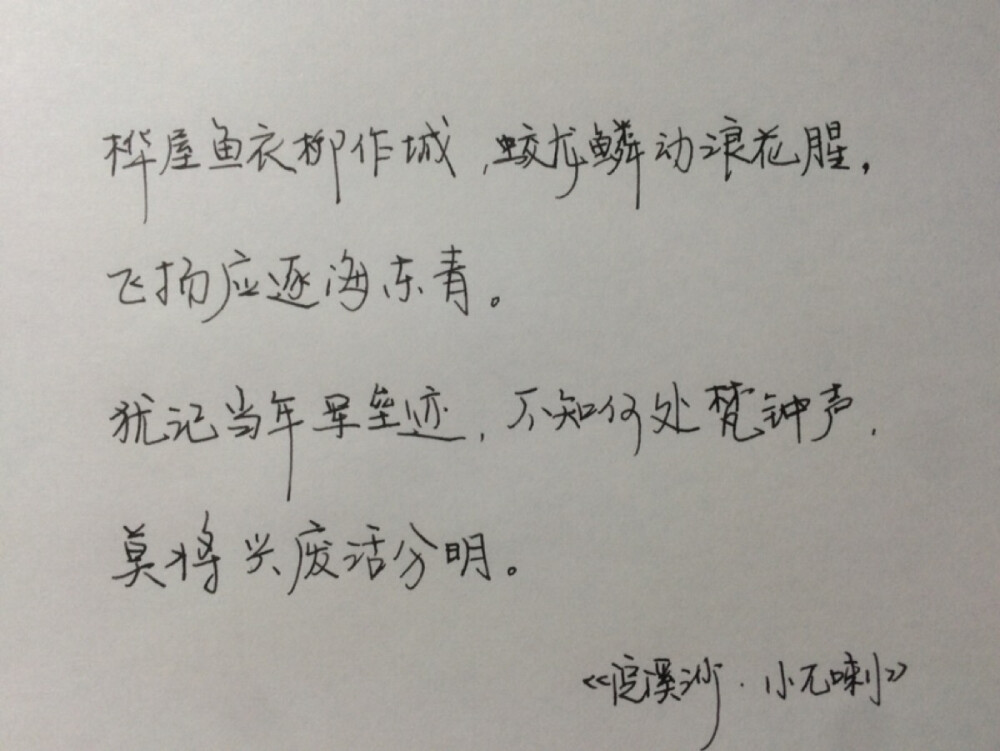 桦屋鱼衣柳作城，蛟龙鳞动浪花腥，
飞扬应逐海东青。
犹记当年军垒迹，不知何处梵钟声，
莫将兴废话分明。
《浣溪沙·小兀喇》